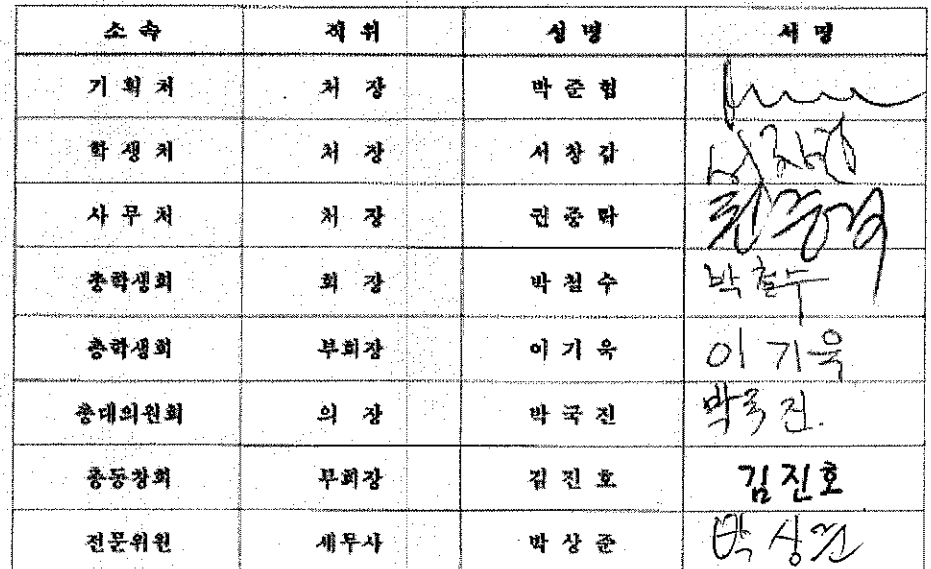 소 속 직 위 성 명 서 명
기 획 처 처 장 박 준 협
학 생 처 처 장 서 창 갑
사 무 처 처 장 권 중 락
총학생회 회 장 박 철 수 박철수
총학생회 부회장 이 기 욱 이 기욱
총대의원회 의 장 박 국 진 박국진.
총동창회 부회장 김 진 호 김진호
전문위원 세무사 박 상 준 박상준